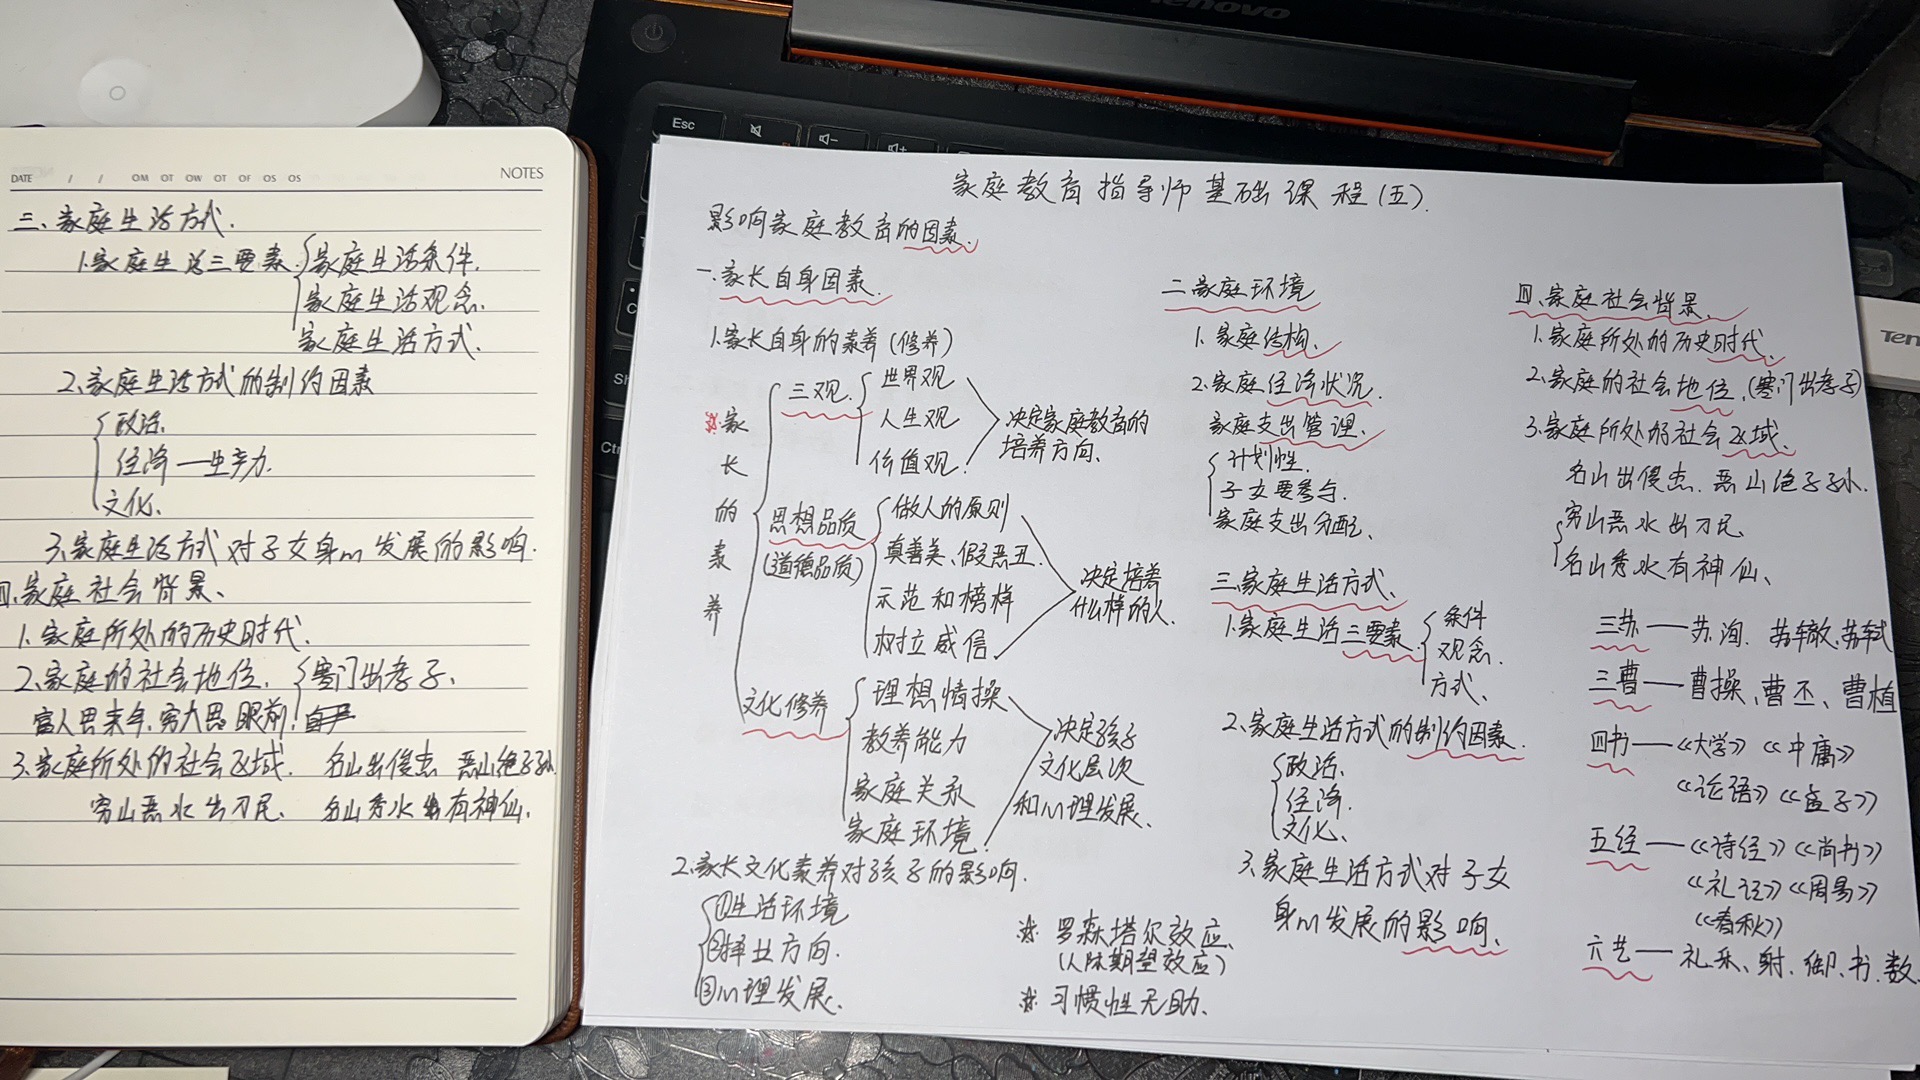 lenovo
Esc
DATE / / OM OT OW OT OF OS OS
NOTES
三、家庭生活方式.
1.家庭生活三要素
家庭生活条件.
家庭生活观念.
家庭生活方式.
2.家庭生活方式的制约因素
政治.
经济—生产力.
文化.
3.家庭生活方式对子女身心发展的影响.
四.家庭社会背景、
1.家庭所处的历史时代.
2.家庭的社会地位. 寒门出孝子、
富人思来年,穷人思眼前.
3.家庭所处的社会区域. 名山出俊杰 恶山绝子孙.
穷山恶水出刁民. 名山秀水有神仙.
家庭教育指导师基础课程(五).
影响家庭教育的因素.
一.家长自身因素.
1.家长自身的素养(修养)
家长的素养
三观.
世界观
人生观
价值观.
决定家庭教育的
培养方向、
思想品质
(道德品质)
做人的原则
真善美、假恶丑.
示范和榜样
树立威信.
决定培养
什么样的人.
文化修养
理想情操
教养能力
家庭关系
家庭环境.
决定孩子
文化层次
和心理发展、
2.家长文化素养对孩子的影响.
①生活环境
②择业方向.
③心理发展.
※ 罗森塔尔效应、
(人际期望效应)
※ 习惯性无助、
二.家庭环境
1.家庭结构、
2.家庭经济状况.
家庭支出管理.
计划性.
子女要参与.
家庭支出分配、
三.家庭生活方式、
1.家庭生活三要素
条件
观念.
方式、
2.家庭生活方式的制约因素.
政治、
经济.
文化、
3.家庭生活方式对子女
身心发展的影响、
四、家庭社会背景、
1.家庭所处的历史时代、
2.家庭的社会地位、(寒门出孝子)
3.家庭所处的社会区域、
名山出俊杰. 恶山绝子孙.
穷山恶水出刁民
名山秀水有神仙、
三苏—苏洵. 苏辙、苏轼
三曹—曹操、曹丕、曹植
四书—《大学》《中庸》
《论语》《孟子》
五经—《诗经》《尚书》
《礼记》《周易》
《春秋》
六艺—礼、乐、射、御、书、数.